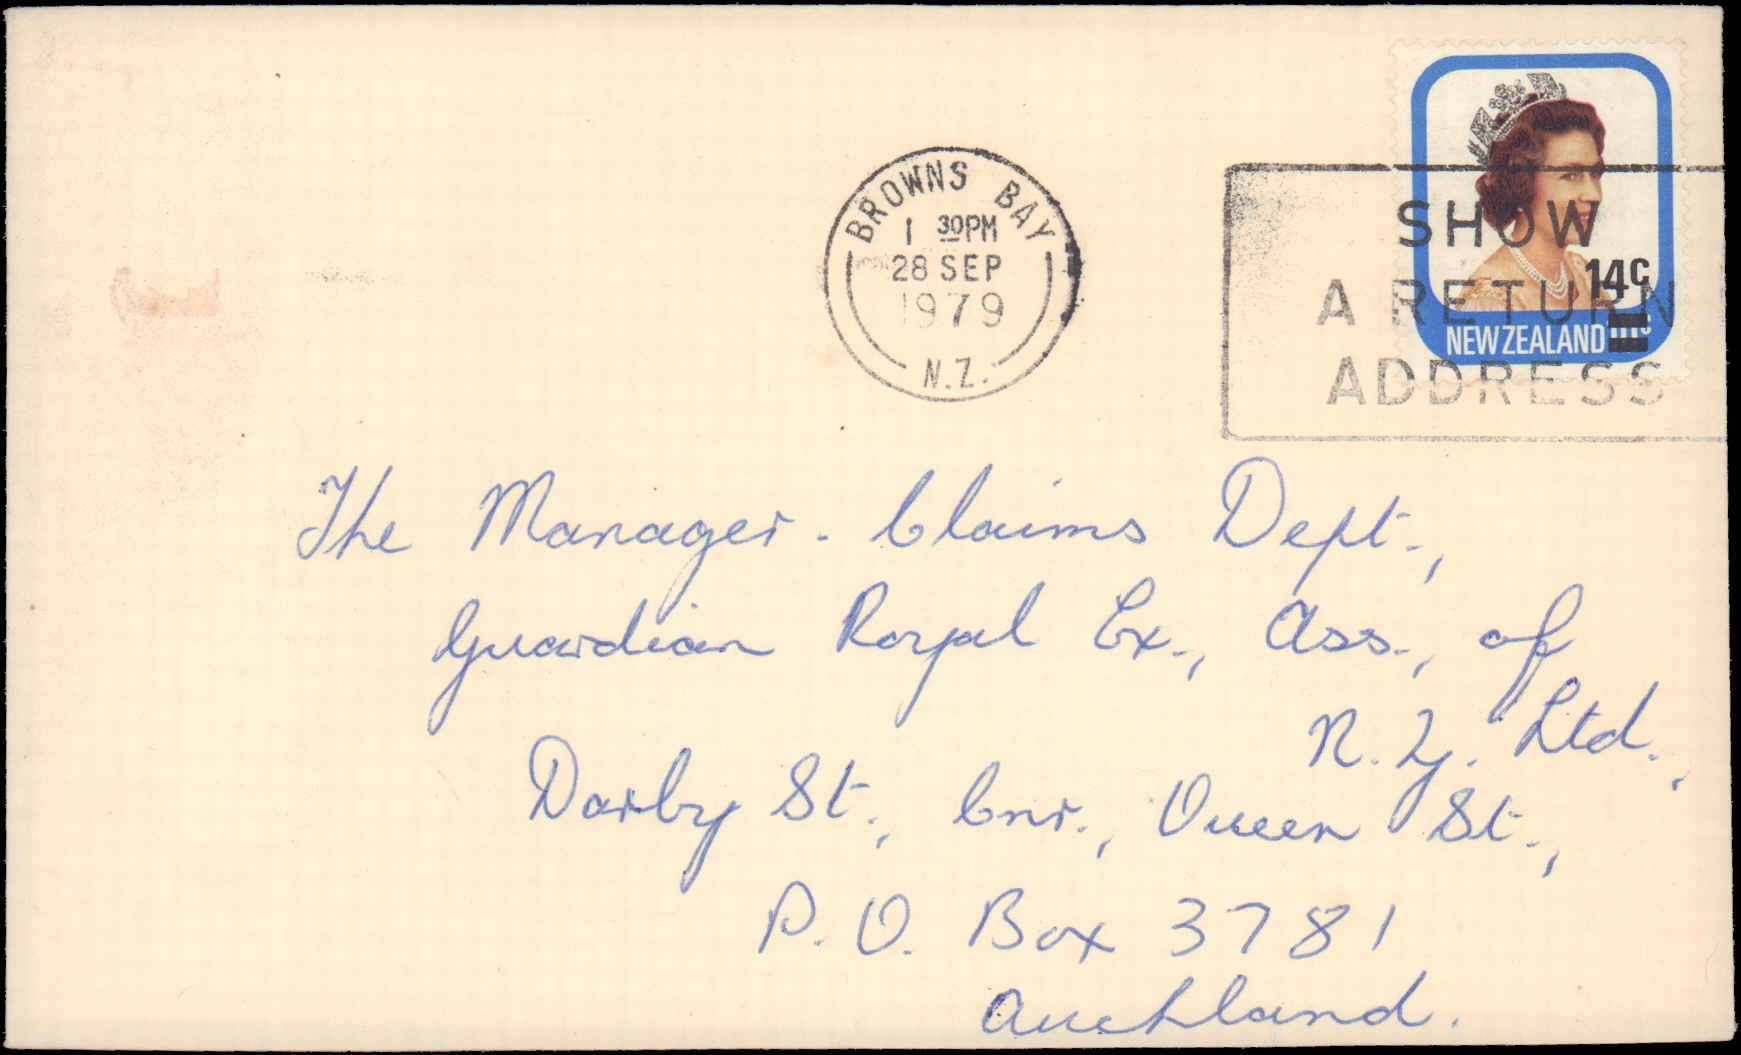 BROWNS BAY
1 30PM
28 SEP
1979
N.Z.
SHOW
A RETURN
ADDRESS
14c
NEW ZEALAND 10c
The Manager. Claims Dept.,
Guardian Royal Ex., Ass., of
N.Z. Ltd.,
Darby St., Cnr., Queen St.,
P.O. Box 3781
Auckland.